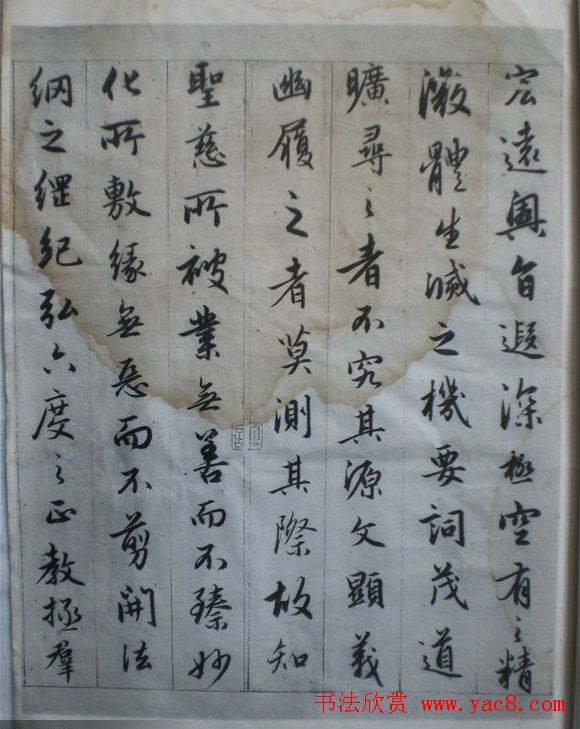 宏遠奧旨遐深極空有之精
微體生滅之機要詞茂道
曠尋之者不究其源文顯義
幽履之者莫測其際故知
聖慈所被業無善而不臻妙
化所敷緣無惡而不剪開法
網之綱紀弘六度之正教拯羣
书法欣赏 www.yac8.com